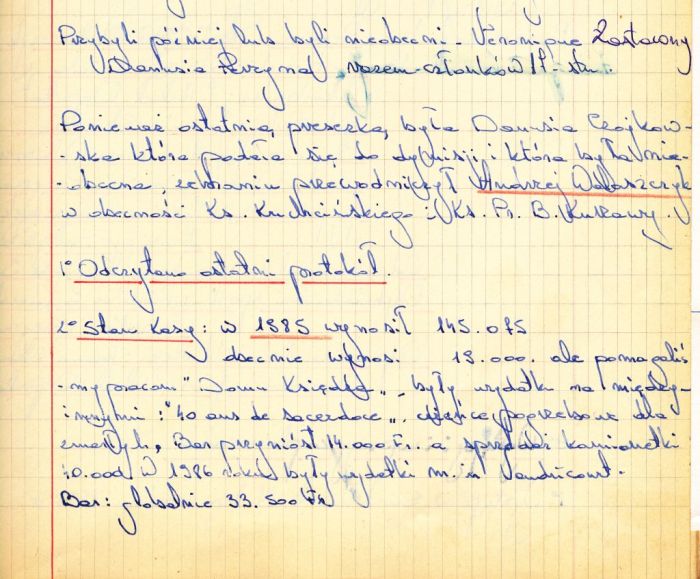 Przybyli później lub byli nieobecni - Veronique Zastawny
Danusia Perzyna, razem - członków 17 - stu.
Ponieważ ostatnią prezeską, była Danusia Czajkow-
-ska która podała się do dymisji i która była nie-
-obecna, zebraniu przewodniczył Andrzej Walaszczyk
w obecności Ks. Kruhcińskiego i Ks. Pr. B. Kurzawy.
1° Odczytano ostatni protokół.
2° Stan Kasy: w 1985 wynosił 145.075
obecnie wynosi 19.000. ale pomagaliś-
-my pracom "Domu Księdza", były wydatki na między-
innymi: "40 ans de sacerdoce", pogrzebowe dla
zmarłych, Bar przyniósł 14.000 Fr. a sprzedaż kamionetki
10.000. W 1986 roku były wydatki m. in Vaudricourt.
Bar: globalnie 33.500 Fr